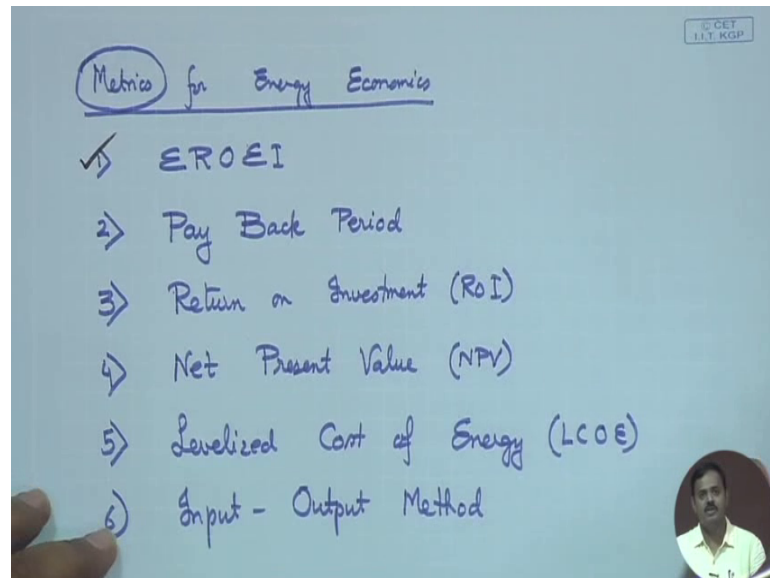 © CET
I.I.T. KGP
Metrics for Energy Economics
1) EROEI
2) Pay Back Period
3) Return on Investment (RoI)
4) Net Present Value (NPV)
5) Levelized Cost of Energy (LCOE)
6) Input - Output Method